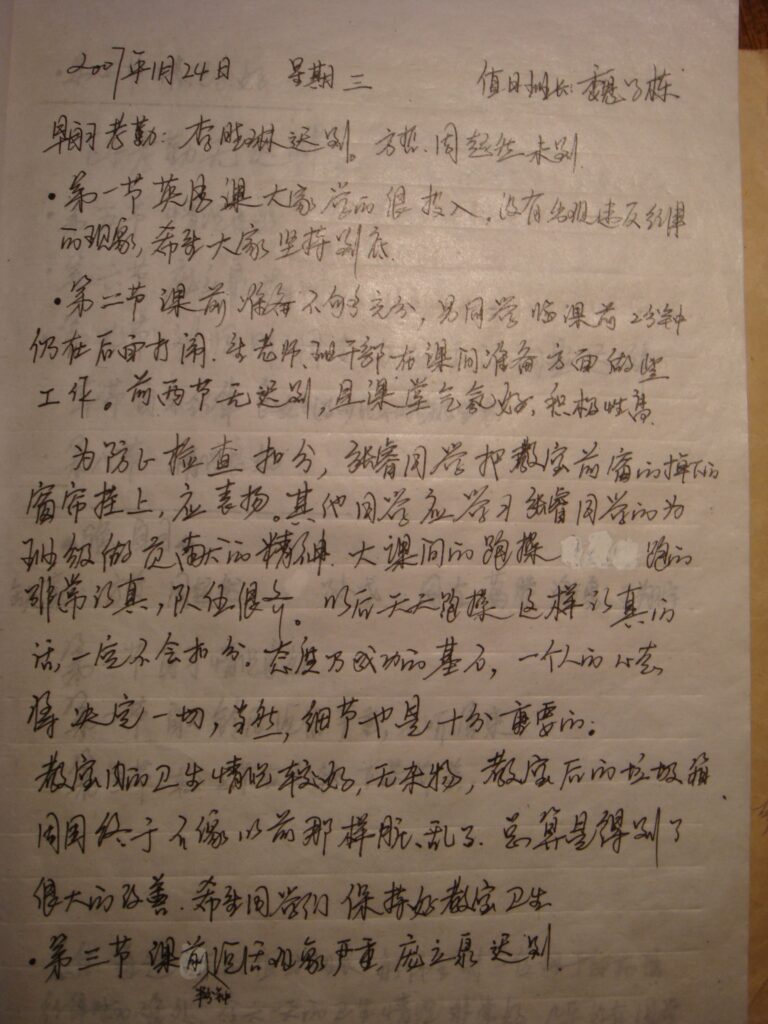 2007年1月24日 星期三 值日班长:魏子栋
早自习考勤:李胜琳迟到。方哲、周超然未到
·第一节英语课大家学的很投入,没有出现违反纪律
的现象,希望大家坚持到底.
·第二节课前准备不够充分,男同学临课前2分钟
仍在后面打闹.朱老师、班干部在课间准备方面做些
工作。前两节无迟到,且课堂气氛好、积极性高.
为防止检查扣分,张睿同学把教室前窗的掉下的
窗帘挂上,应表扬。其他同学应学习张睿同学的为
班级做贡献的精神.大课间的跑操 跑的
非常认真,队伍很齐。以后天天跑操这样认真的
话,一定不会扣分.态度乃成功的基石,一个人的心态
将决定一切,当然,细节也是十分重要的。
教室内的卫生情况较好,无杂物,教室后的垃圾箱
周围终于不像以前那样脏、乱了.总算是得到了
很大的改善.希望同学们保持好教室卫生
·第三节课前说话现象严重,庞立泉迟到.